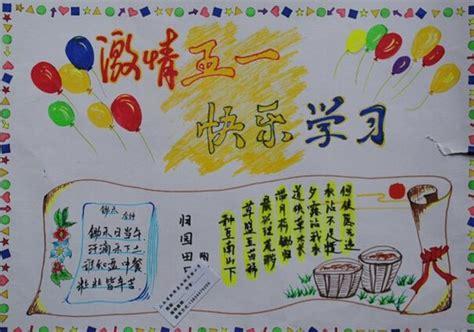 激情五一
快乐学习
锄禾
锄禾日当午
汗滴禾下土
谁知盘中餐
粒粒皆辛苦
归园田
种豆南山下
草盛豆苗稀
晨兴理荒秽
带月荷锄归
道狭草木长
夕露沾我衣
衣沾不足惜
但使愿无违